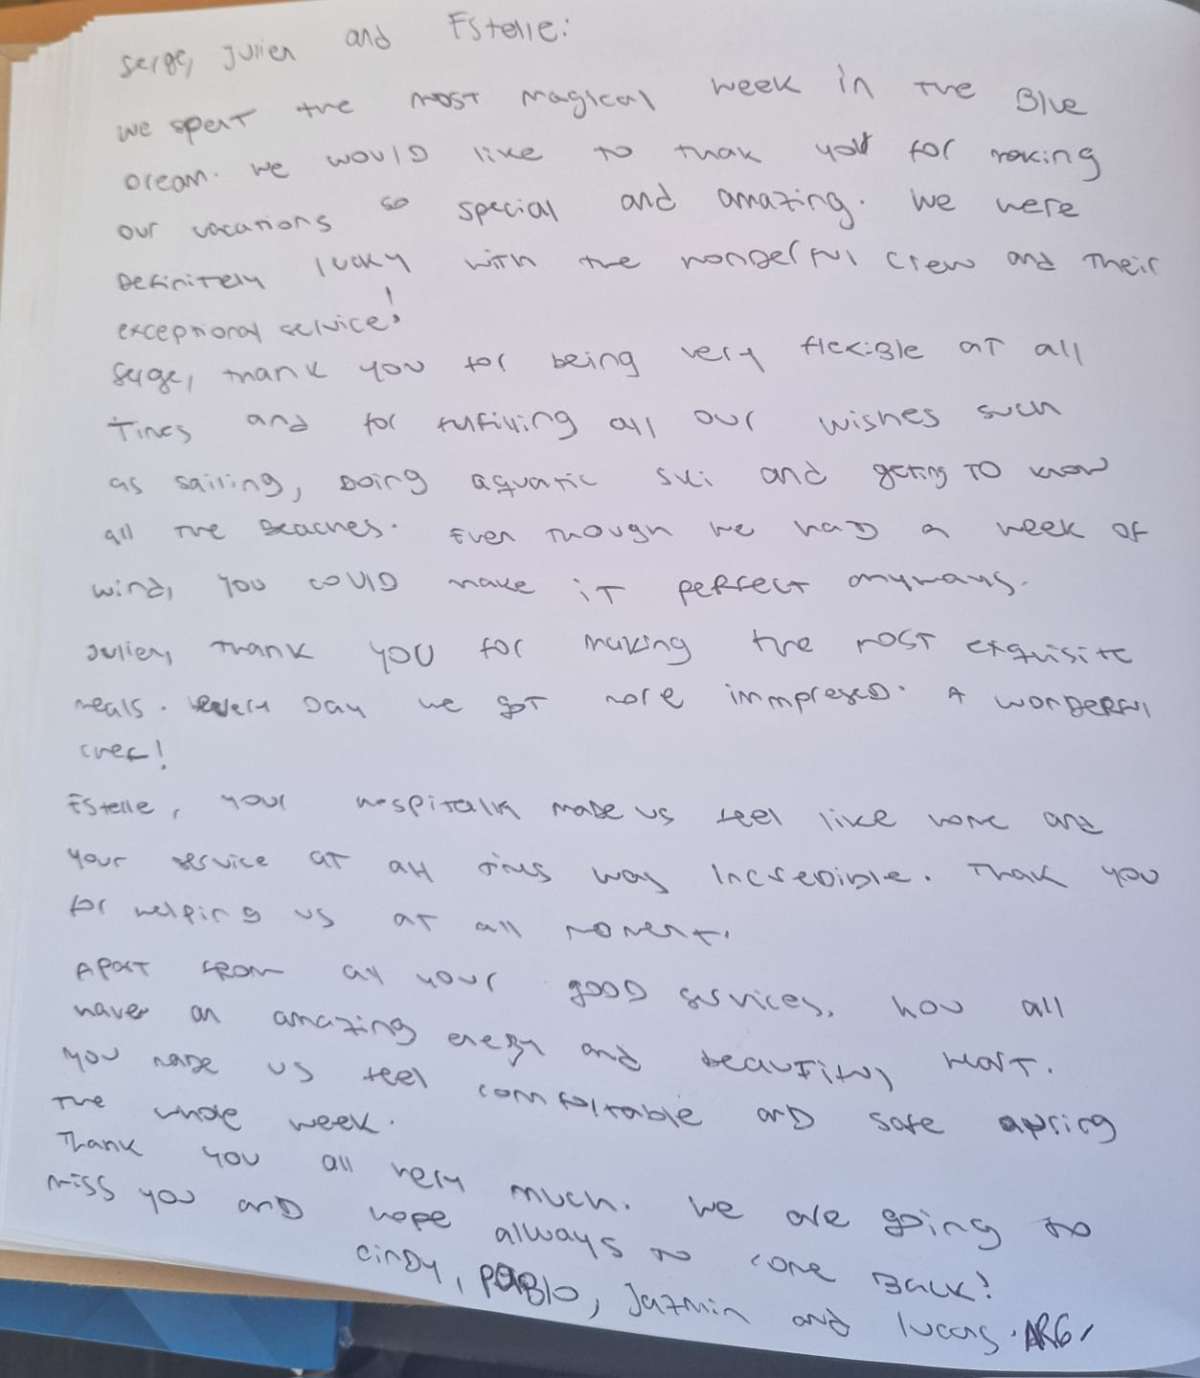 Serge, Julien and Estelle:
We spent the most magical week in the Blue
Ocean. We would like to thak you for making
our vacations so special and amazing. We were
Definitely lucky with the wonderful crew and their
exceptional service!
Serge, thank you for being very flexible at all
Times and for fulfilling all our wishes such
as sailing, Doing aquatic ski and geting to know
all the Beaches. Even though we had a week of
wind, you could make it perfect anyways.
Julien, thank you for making the most exquisite
meals. every Day we got more immpresed. A wonderful
chef!
Estelle, your hospitality made us feel like home and
your service at all times way incredible. Thak you
for helping us at all moment.
Apart from all your good services, you all
have an amazing energy and beautiful heart.
You made us feel comfortable and safe
the whole week.
Thank you all very much. We are going to
miss you and hope always to come back!
Cindy, Pablo, Jazmin and Lucas. ARG